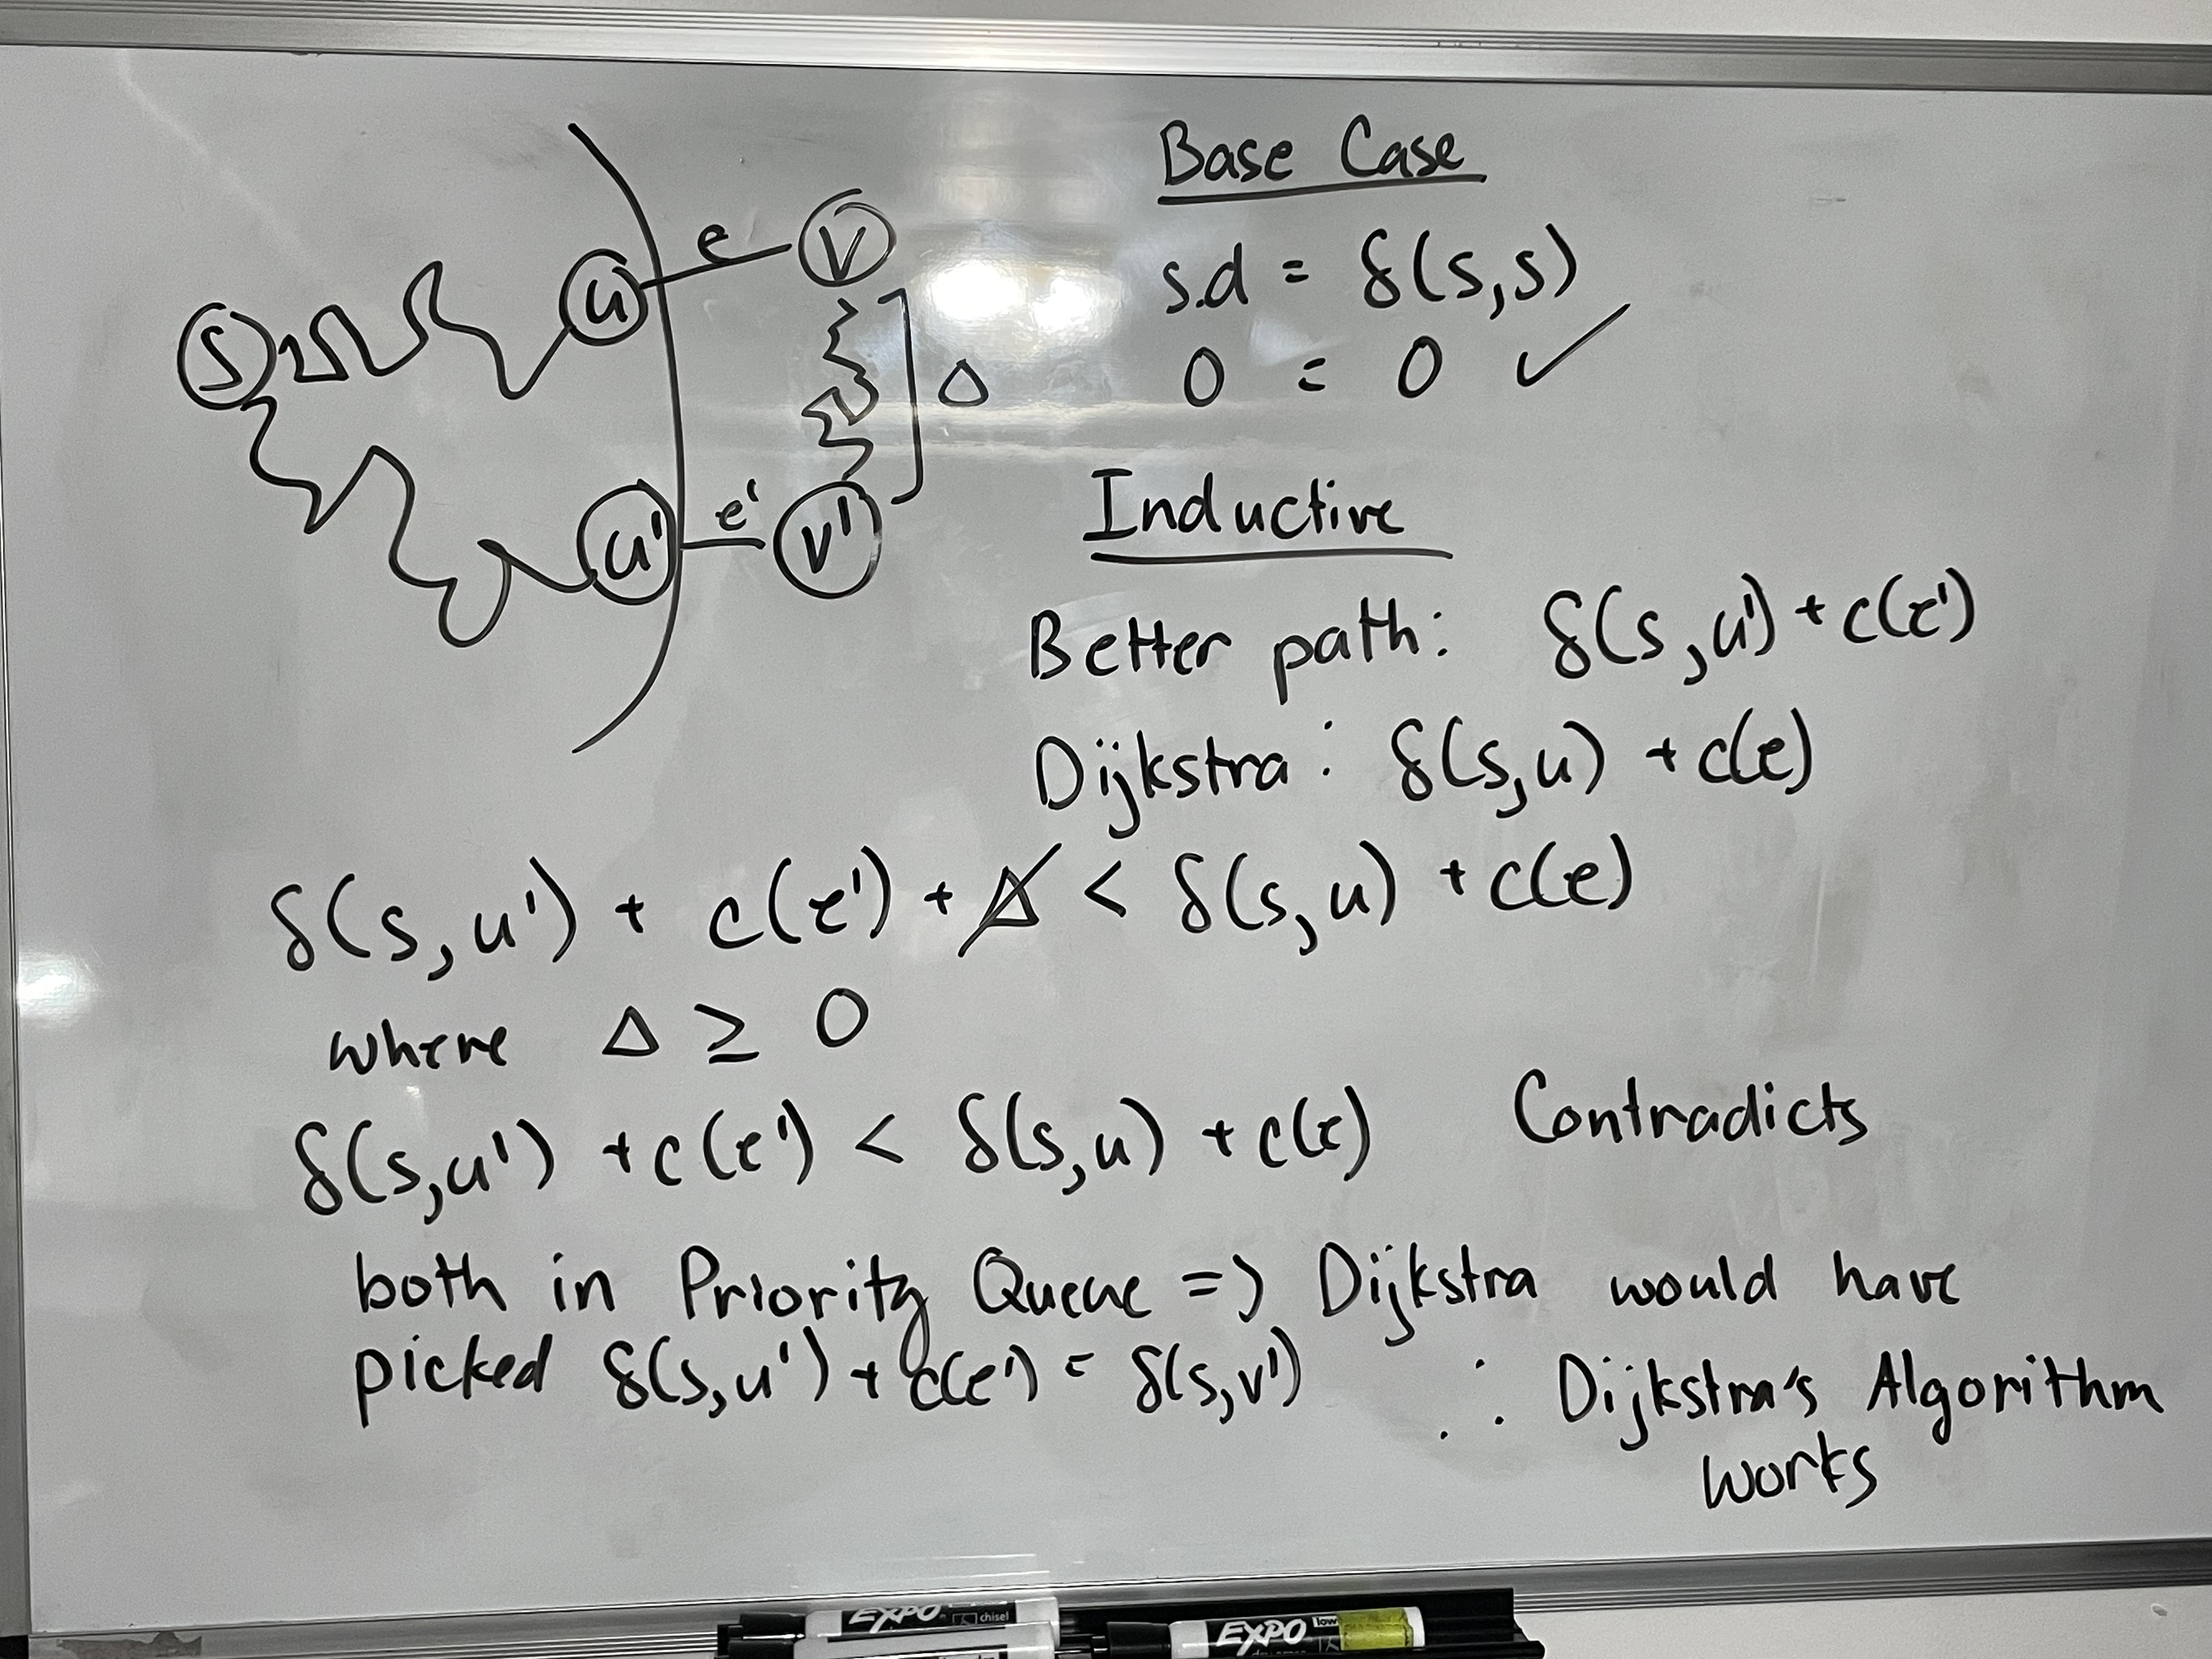 Base Case
s.d = δ(s,s)
0 = 0 ✓
S
u
e
v
Δ
u'
e'
v'
Inductive
Better path: δ(s,u') + c(e')
Dijkstra: δ(s,u) + c(e)
δ(s,u') + c(e') + Δ < δ(s,u) + c(e)
where Δ ≥ 0
δ(s,u') + c(e') < δ(s,u) + c(e) Contradicts
both in Priority Queue => Dijkstra would have
picked δ(s,u') + c(e') = δ(s,v')
∴ Dijkstra's Algorithm
works
EXPO chisel
EXPO low